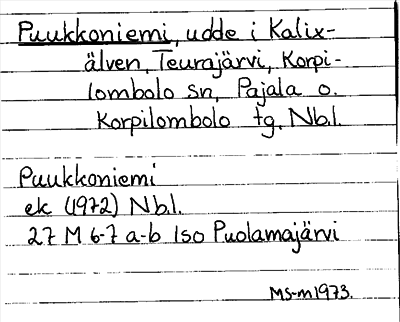 Puukkoniemi, udde i Kalix-
älven, Teurajärvi, Korpi-
lombolo sn, Pajala o.
Korpilombolo tg. Nb.l.
Puukkoniemi
ek (1972) Nb.l.
27 M 6-7 a-b Iso Puolamajärvi
MS-m 1973.